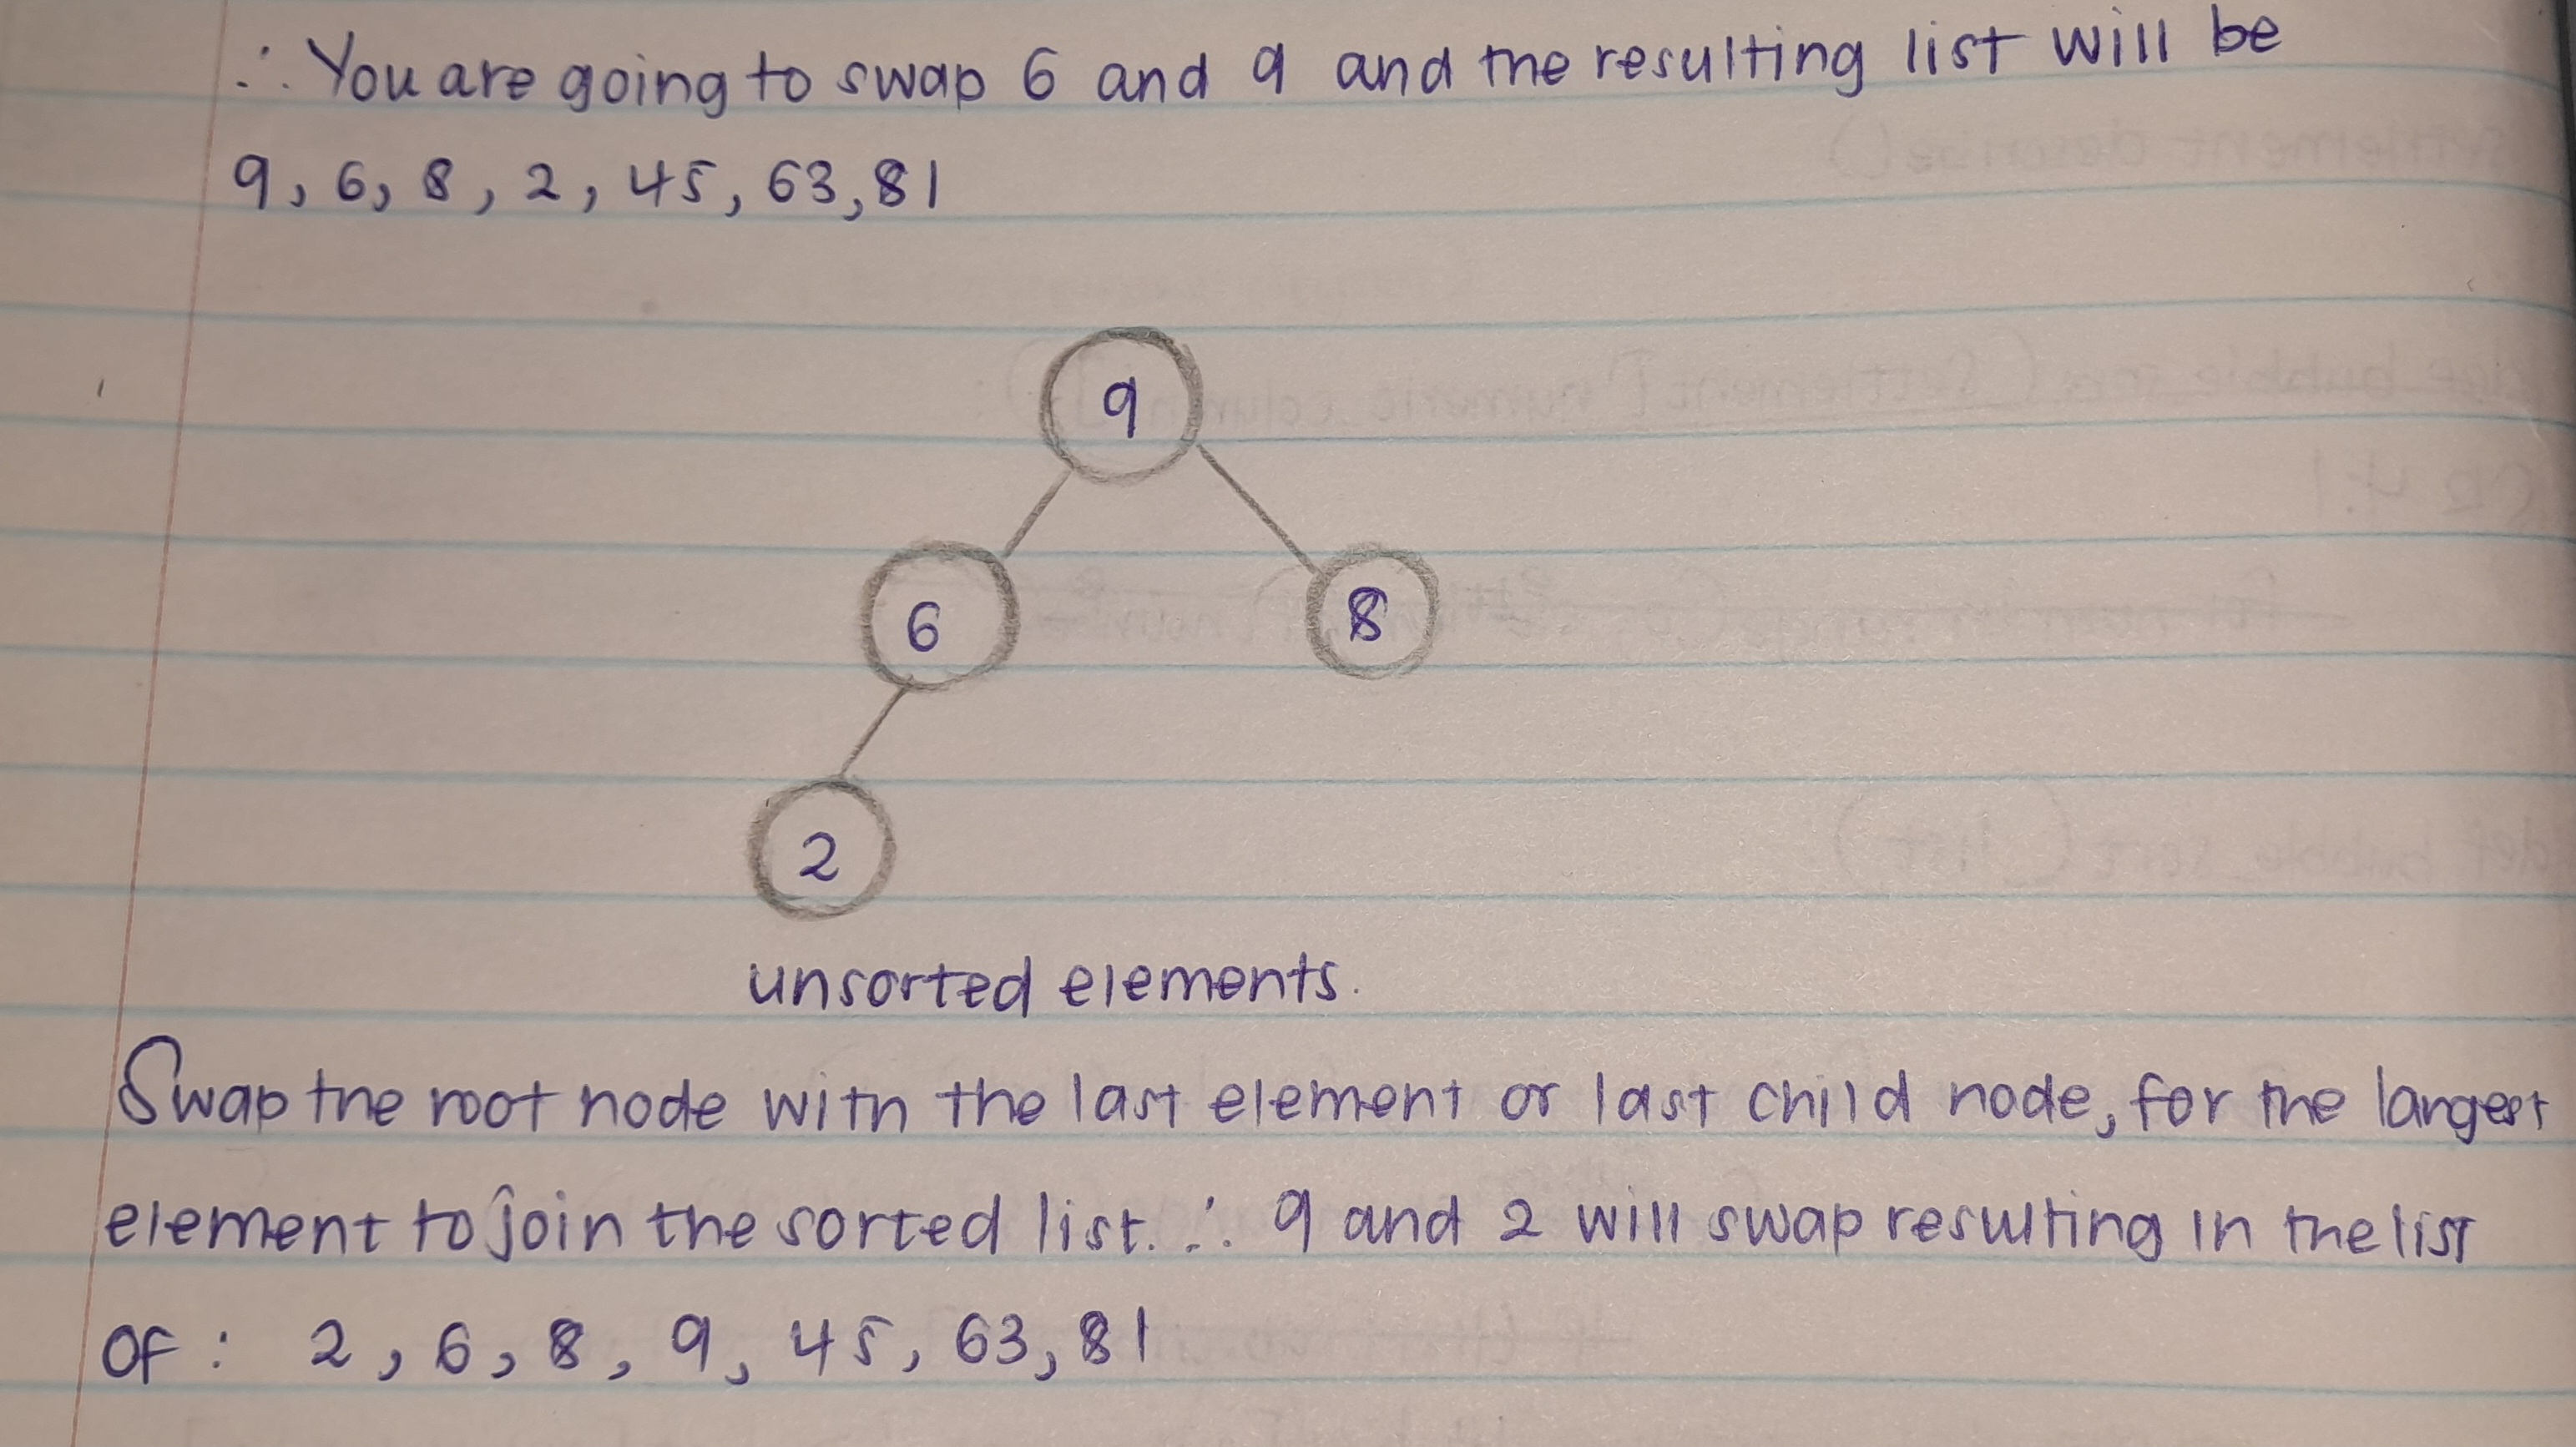 ∴ You are going to swap 6 and 9 and the resulting list will be
9, 6, 8, 2, 45, 63, 81
9
6 8
2
unsorted elements.
Swap the root node with the last element or last child node, for the largest
element to join the sorted list. ∴ 9 and 2 will swap resulting in the list
OF : 2, 6, 8, 9, 45, 63, 81